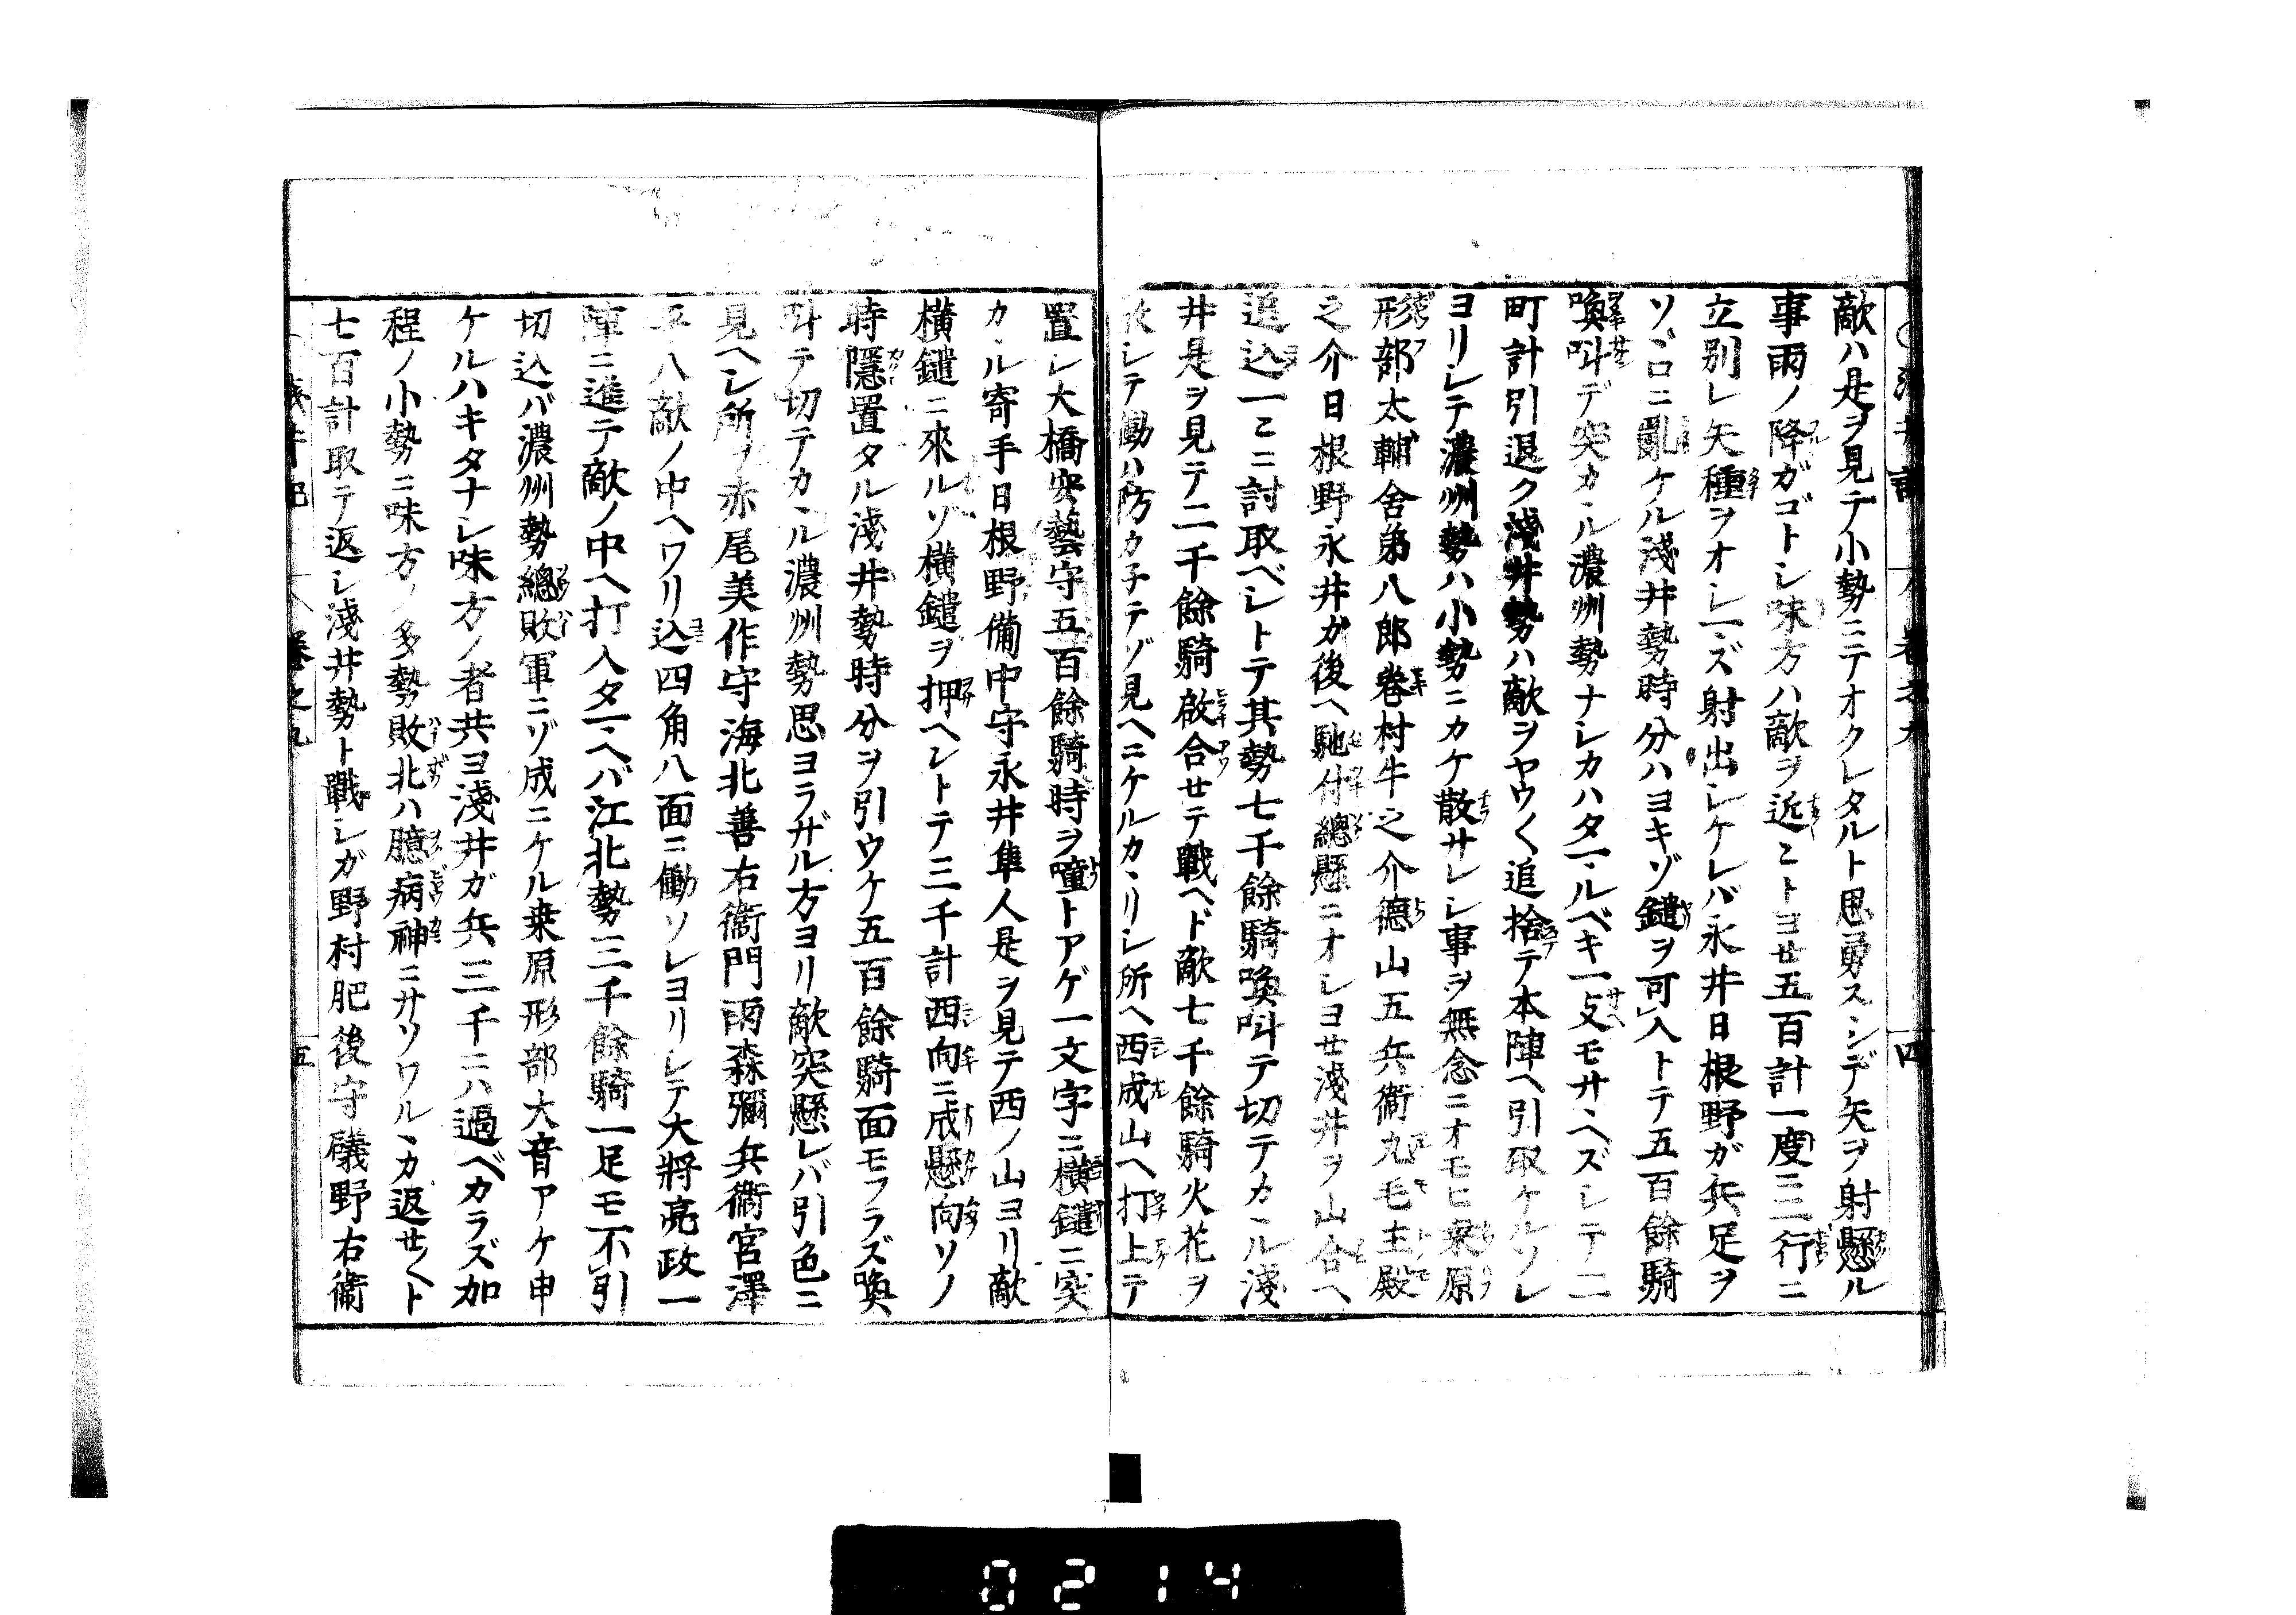 敵ハ是ヲ見テ小勢ニテオクレタルト思勇スヽンデ矢ヲ射懸ル
事雨ノ降ガゴトシ味方ハ敵ヲ近〻トヨせ五百計一度ニ三行ニ
立別レ矢種ヲオシマズ射出シケレバ永井日根野が兵足ヲ
ソヾロニ亂ケル淺井勢時分ハヨキゾ鑓ヲ可入トテ五百餘騎
喚叫デ突カヽル濃州勢ナシカハタマルベキ一支モサヽヘズシテ二
町計引退ク淺井勢ハ敵ヲヤウ〱追捨テ本陣ヘ引取ケルソレ
ヨリシテ濃州勢ハ小勢ニカケ散サレシ事ヲ無念ニオモヒ桒原
形部太輔舍弟八郎巻村牛之介德山五兵衞丸毛主殿
之介日根野永井ガ後ヘ馳付總懸ニオシヨせ淺井ヲ山合ヘ
追込一〻ニ討取ベシトテ其勢七千餘騎喚叫テ切テカヽル淺
井是ヲ見テ二千餘騎啟合せテ戰ヘド敵七千餘騎火花ヲ
シテ働ハ防カ子テゾ見ヘニケルカヽリシ所ヘ西成山ヘ打上テ
置シ大橋安藝守五百餘騎時ヲ噇トアゲ一文字ニ横鑓ニ突
カヽル寄手日根野備中守永井隼人是ヲ見テ西ノ山ヨリ敵
横鑓ニ來ルゾ横鑓ヲ押ヘントテ三千計西向ニ成懸向ソノ
時隱置タル淺井勢時分ヲ引ウケ五百餘騎面モフラズ喚
叫テ切テカヽル濃州勢思ヨラザル方ヨリ敵突懸レバ引色ニ
見ヘシ所ヲ赤尾美作守海北善右衞門雨森彌兵衞宮澤
平八敵ノ中ヘワリ込四角八面ニ働ソレヨリシテ大將亮政一
陣ニ進テ敵ノ中ヘ打入タマヘバ江北勢三千餘騎一足モ不引
切込バ濃州勢總敗軍ニゾ成ニケル桒原形部大音アケ申
ケルハキタナシ味方ノ者共ヨ淺井ガ兵三千ニハ過ベカラズ加
程ノ小勢ニ味方ノ多勢敗北ハ臆病神ニサソワルヽカ返せ〱ト
七百計取テ返シ淺井勢ト戰シガ野村肥後守礒野右衞
0214